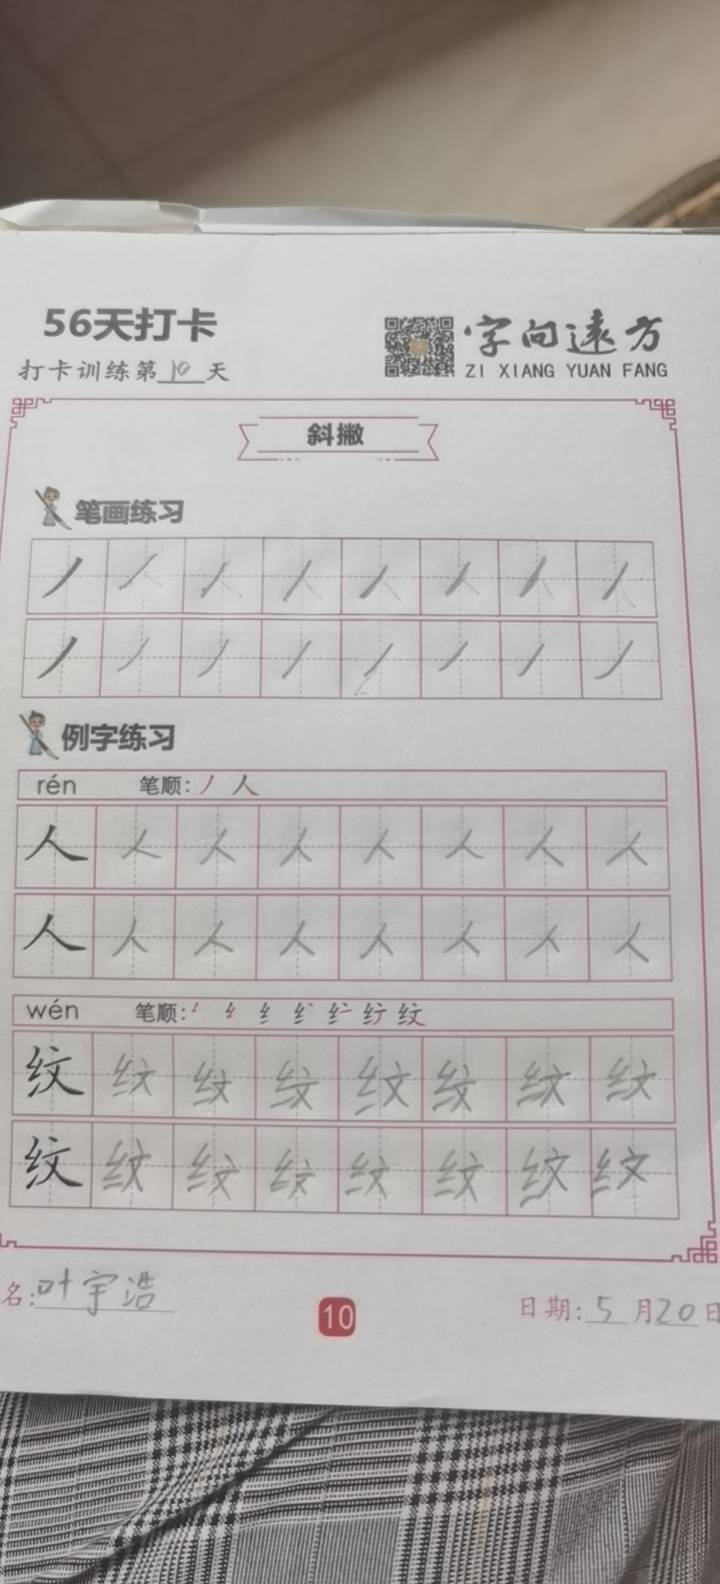 56天打卡
字向远方
打卡训练第10天
ZI XIANG YUAN FANG
斜撇
笔画练习
丿 人 人 人 人 人 人 人
丿 丿 丿 丿 丿 丿 丿 丿
例字练习
rén 笔顺: 丿 人
人 人 人 人 人 人 人 人
人 人 人 人 人 人 人 人
wén 笔顺: 纹
纹 纹 纹 纹 纹 纹 纹 纹
纹 纹 纹 纹 纹 纹 纹 纹
名:叶宇浩
10
日期:5月20日